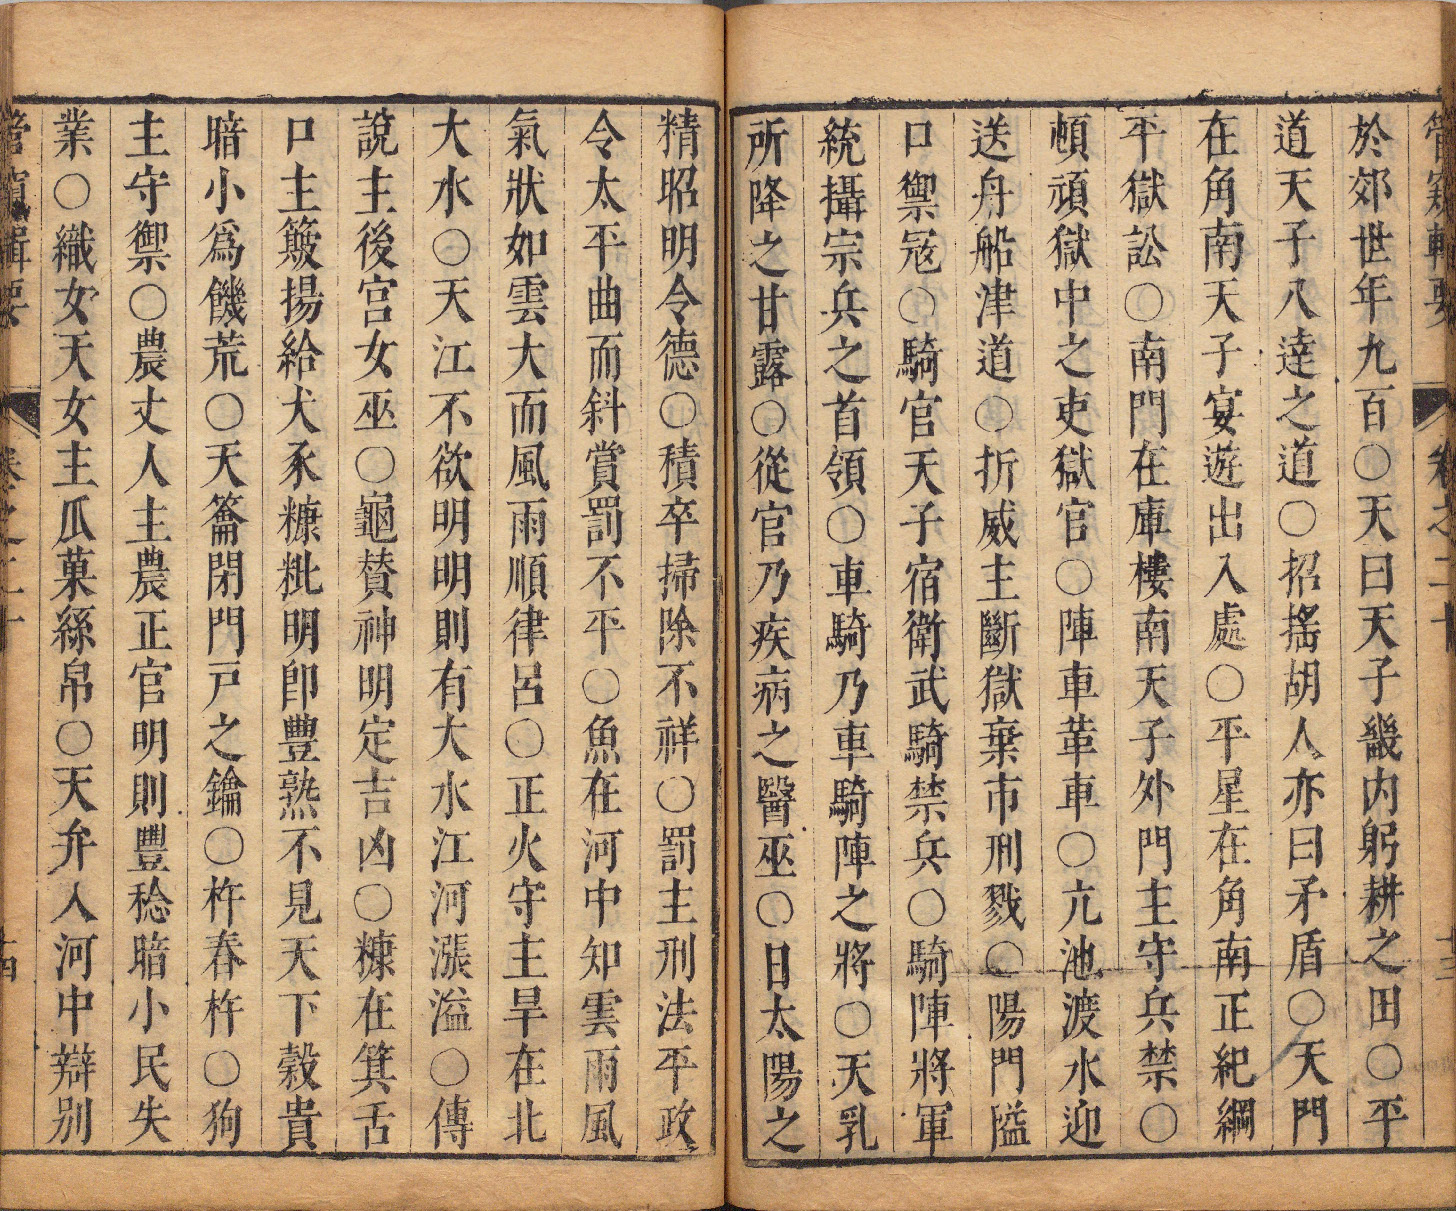 管窺輯要 卷之二十 十三
於郊世年九百〇天曰天子畿内躬耕之田〇平
道天子八達之道〇招搖胡人亦曰矛盾〇天門
在角南天子宴遊出入處〇平星在角南正紀綱
平獄訟〇南門在庫樓南天子外門主守兵禁〇
頓頑獄中之吏獄官〇陣車革車〇亢池渡水迎
送舟船津道〇折威主斷獄棄市刑戮〇陽門隘
口禦冦〇騎官天子宿衛武騎禁兵〇騎陣將軍
統攝宗兵之首領〇車騎乃車騎陣之將〇天乳
所降之甘露〇從官乃疾病之醫巫〇日太陽之
精昭明令德〇積卒掃除不祥〇罰主刑法平政
令太平曲而斜賞罰不平〇魚在河中知雲雨風
氣狀如雲大而風雨順律呂〇正火守主旱在北
大水〇天江不欲明明則有大水江河漲溢〇傳
說主後宫女巫〇龜賛神明定吉凶〇糠在箕舌
口主簸揚給犬豕糠粃明卽豐熟不見天下穀貴
暗小爲饑荒〇天籥閉門戸之鑰〇杵春杵〇狗
主守禦〇農丈人主農正官明則豐稔暗小民失
業〇織女天女主瓜菓絲帛〇天弁人河中辯别
管窺輯要 卷之二十 十四